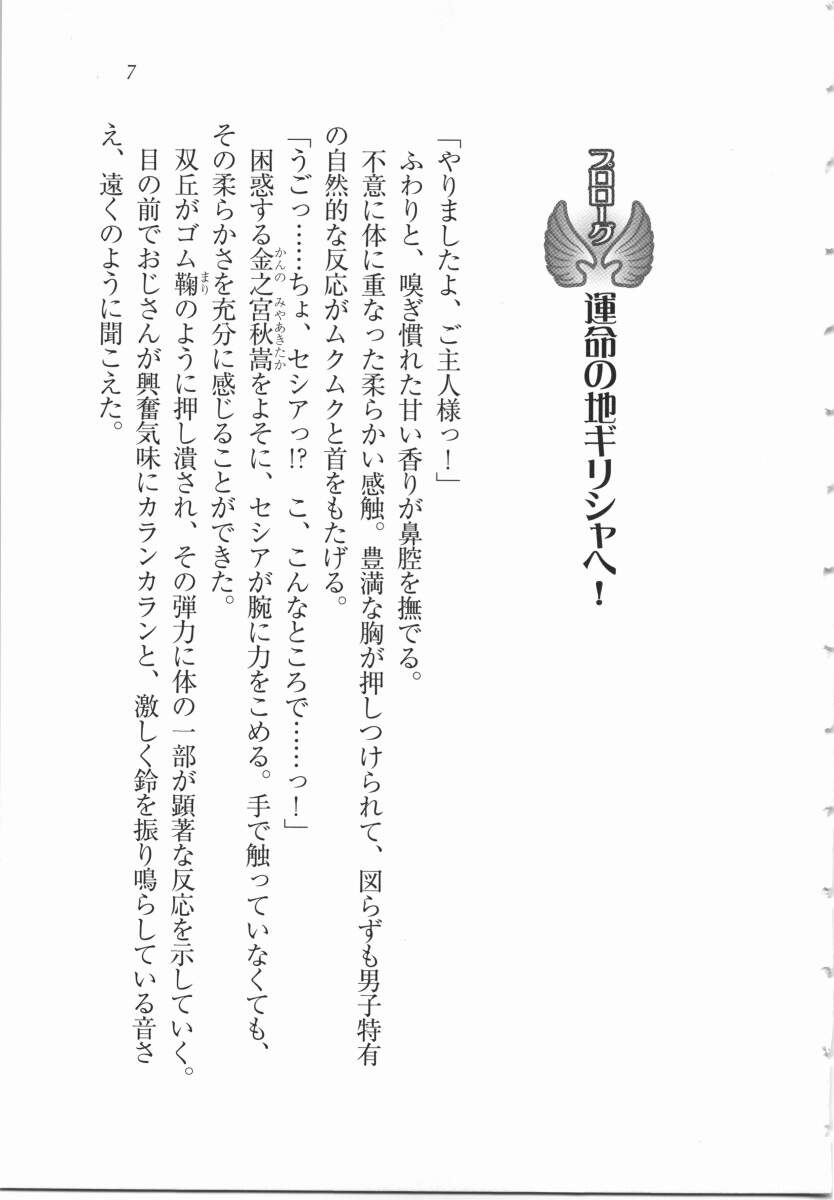 プロローグ
運命の地ギリシャへ！
「やりましたよ、ご主人様っ！」
ふわりと、嗅ぎ慣れた甘い香りが鼻腔を撫でる。
不意に体に重なった柔らかい感触。豊満な胸が押しつけられて、図らずも男子特有
の自然的な反応がムクムクと首をもたげる。
「うごっ……ちょ、セシアっ!?　こ、こんなところで……っ！」
困惑する金之宮秋嵩をよそに、セシアが腕に力をこめる。手で触っていなくても、
かんの みやあきたか
その柔らかさを充分に感じることができた。
双丘がゴム鞠のように押し潰され、その弾力に体の一部が顕著な反応を示していく。
まり
目の前でおじさんが興奮気味にカランカランと、激しく鈴を振り鳴らしている音さ
え、遠くのように聞こえた。
7